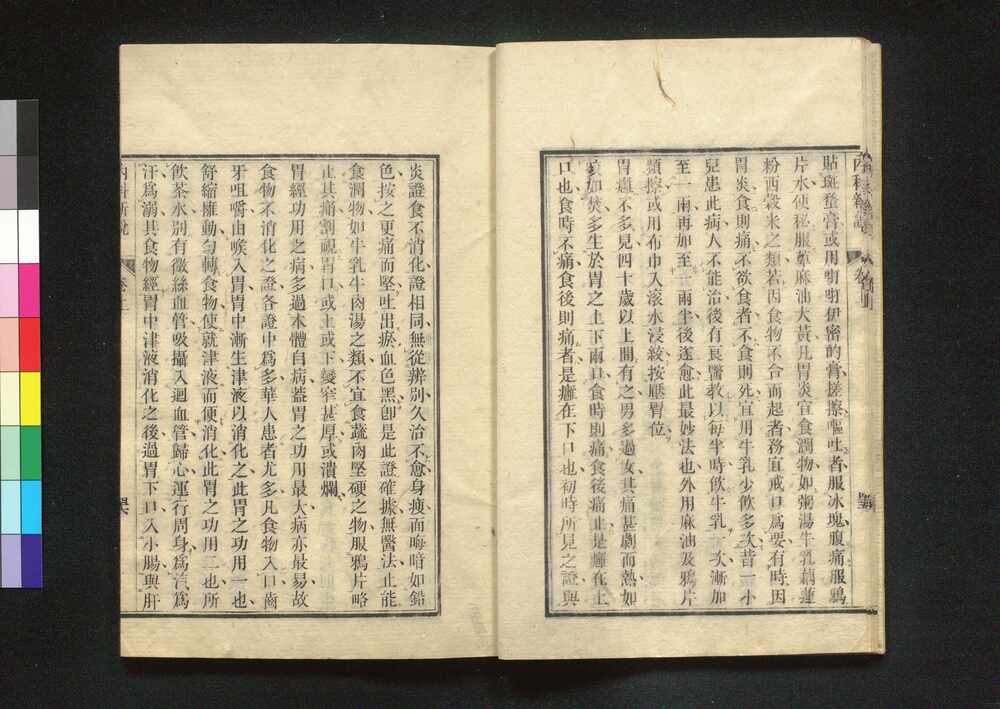 貼斑蝥膏或用啊啊伊密的膏搓擦嘔吐者服冰塊腹痛服鴉
片水便秘服萆麻油大黃凡胃炎宜食潤物如粥湯牛乳藕蓮
粉西榖米之類若因食物不合而起者務宜戒口爲要有時因
胃炎食則痛不欲食者不食則死宜用牛乳少飲多次昔一小
兒患此病人不能治後有良醫教以每半時飲牛乳一次漸加
至一兩再加至二兩半後遂愈此最妙法也外用麻油及鴉片
類擦或用布巾入滾水浸絞按壓胃位
胃癰不多見四十歲以上間有之男多過女其痛甚劇而熱如
痰如焚多生於胃之上下兩口食時則痛食後痛止是癰在上
口也食時不痛食後則痛者是癰在下口也初時所見之證與
炎證食不消化證相同無從辨別久治不愈身瘦而晦暗如鉛
色按之更痛而堅吐出瘀血色黑卽是此證確據無醫法止能
食潤物如牛乳牛肉湯之類不宜食蔬肉堅硬之物服鴉片略
止其痛割視胃口或上或下縮窄甚厚或潰爛
胃經功用之病多過本體自病蓋胃之功用最大病亦最易故
食物不消化之證各證中爲多華人患者尤多凡食物入口齒
牙咀嚼由喉入胃胃中漸生津液以消化之此胃之功用一也
舒縮雍動勻轉食物使就津液而便消化此胃之功用二也所
飲茶水別有微絲血管吸攝入迴血管歸心運行周身爲汽爲
汗爲溺其食物經胃中津液消化之後過胃下口入小腸與肝
內科新說
卷上